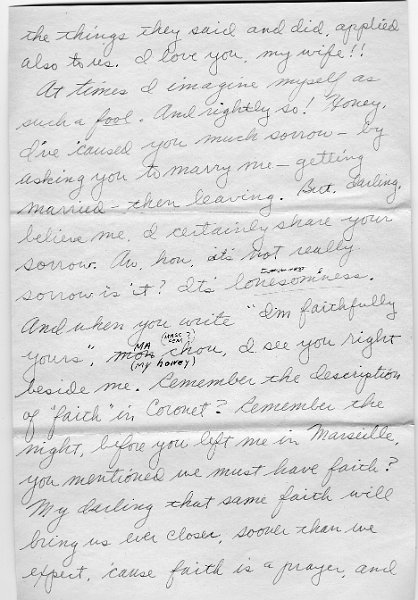 the things they said and did, applied
also to us. I love you, my wife!!
At times I imagine myself as
such a fool. And rightly so! Honey,
I've 'caused you much sorrow – by
asking you to marry me – getting
married – then leaving. But, darling,
believe me, I certainly share your
sorrow. Aw, hon, it's not really
sorrow is it? It's lonesomness.
And when you write "I'm faithfully
MA (MASC? FEM
yours", mon chou, I see you right
(My honey)
beside me. Remember the description
of "faith" in Coronet? Remember the
night, before you left me in Marseille,
you mentioned we must have faith?
My darling that same faith will
bring us ever closer, sooner than we
expect, 'cause faith is a prayer, and